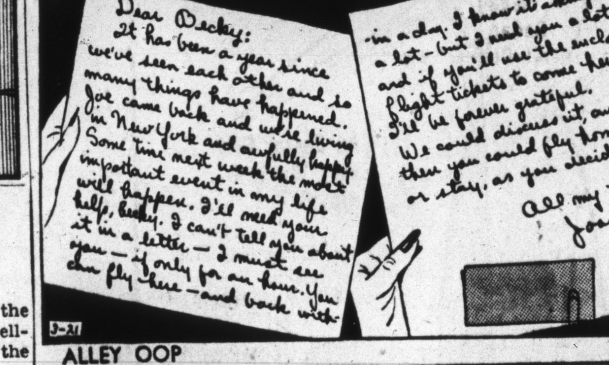 Dear Becky:
It has been a year since
we've seen each other and so
many things have happened.
Joe came back and we're living
in New York and awfully happy
Some time next week the most
important event in my life
will happen. I'll need your
help, Becky. I can't tell you about
it in a letter — I must see
you — if only for an hour. You
can fly here — and back with-
in a day. I know it's
a lot — but I need you a lot
and if you'll use the
flight tickets to come
I'll be forever grateful.
We could discuss it,
then you could fly
or stay, as you
All my
3-21
the
ell-
the
ALLEY OOP